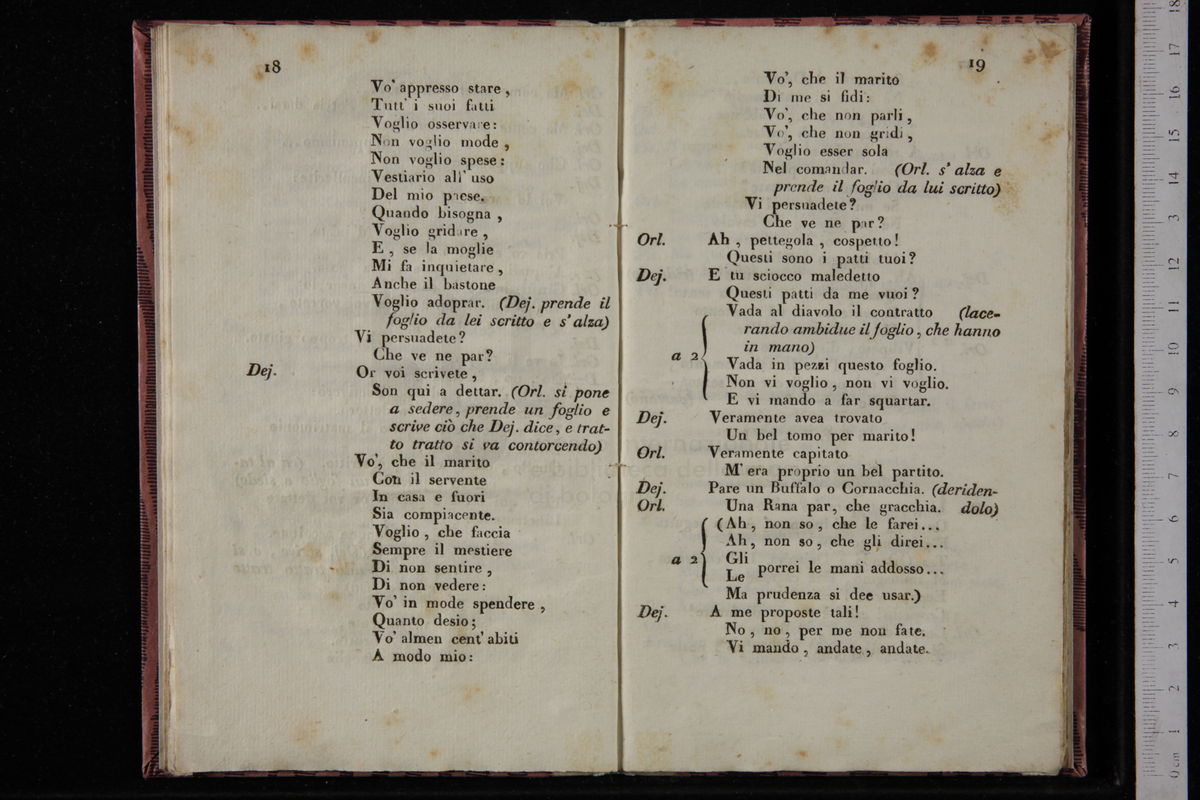 18
Vo' appresso stare ,
Tutt' i suoi fatti
Voglio osservare :
Non voglio mode ,
Non voglio spese :
Vestiario all' uso
Del mio paese.
Quando bisogna ,
Voglio gridare ,
E , se la moglie
Mi fa inquietare ,
Anche il bastone
Voglio adoprar. (Dej. prende il
foglio da lei scritto e s' alza)
Vi persuadete ?
Che ve ne par ?
Dej. Or voi scrivete ,
Son qui a dettar. (Orl. si pone
a sedere , prende un foglio e
scrive ciò che Dej. dice , e trat-
to tratto si va contorcendo)
Vo', che il marito
Con il servente
In casa e fuori
Sia compiacente.
Voglio , che faccia
Sempre il mestiere
Di non sentire ,
Di non vedere :
Vo' in mode spendere ,
Quanto desio ;
Vo' almen cent' abiti
A modo mio :
19
Vo', che il marito
Di me si fidi :
Vo', che non parli ,
Vo', che non gridi ,
Voglio esser sola
Nel comandar. (Orl. s' alza e
prende il foglio da lui scritto)
Vi persuadete ?
Che ve ne par ?
Orl. Ah , pettegola , cospetto !
Questi sono i patti tuoi ?
Dej. E tu sciocco maledetto
Questi patti da me vuoi ?
Vada al diavolo il contratto (lace-
rando ambidue il foglio , che hanno
in mano)
a 2 Vada in pezzi questo foglio.
Non vi voglio , non vi voglio.
E vi mando a far squartar.
Dej. Veramente avea trovato
Un bel tomo per marito !
Orl. Veramente capitato
M' era proprio un bel partito.
Dej. Pare un Buffalo o Cornacchia. (deriden-
Orl. Una Rana par, che gracchia. dolo)
(Ah , non so , che le farei...
Ah , non so , che gli direi...
a 2 Gli
Le porrei le mani addosso...
Ma prudenza si dee usar.)
Dej. A me proposte tali !
No , no , per me non fate.
Vi mando , andate , andate.